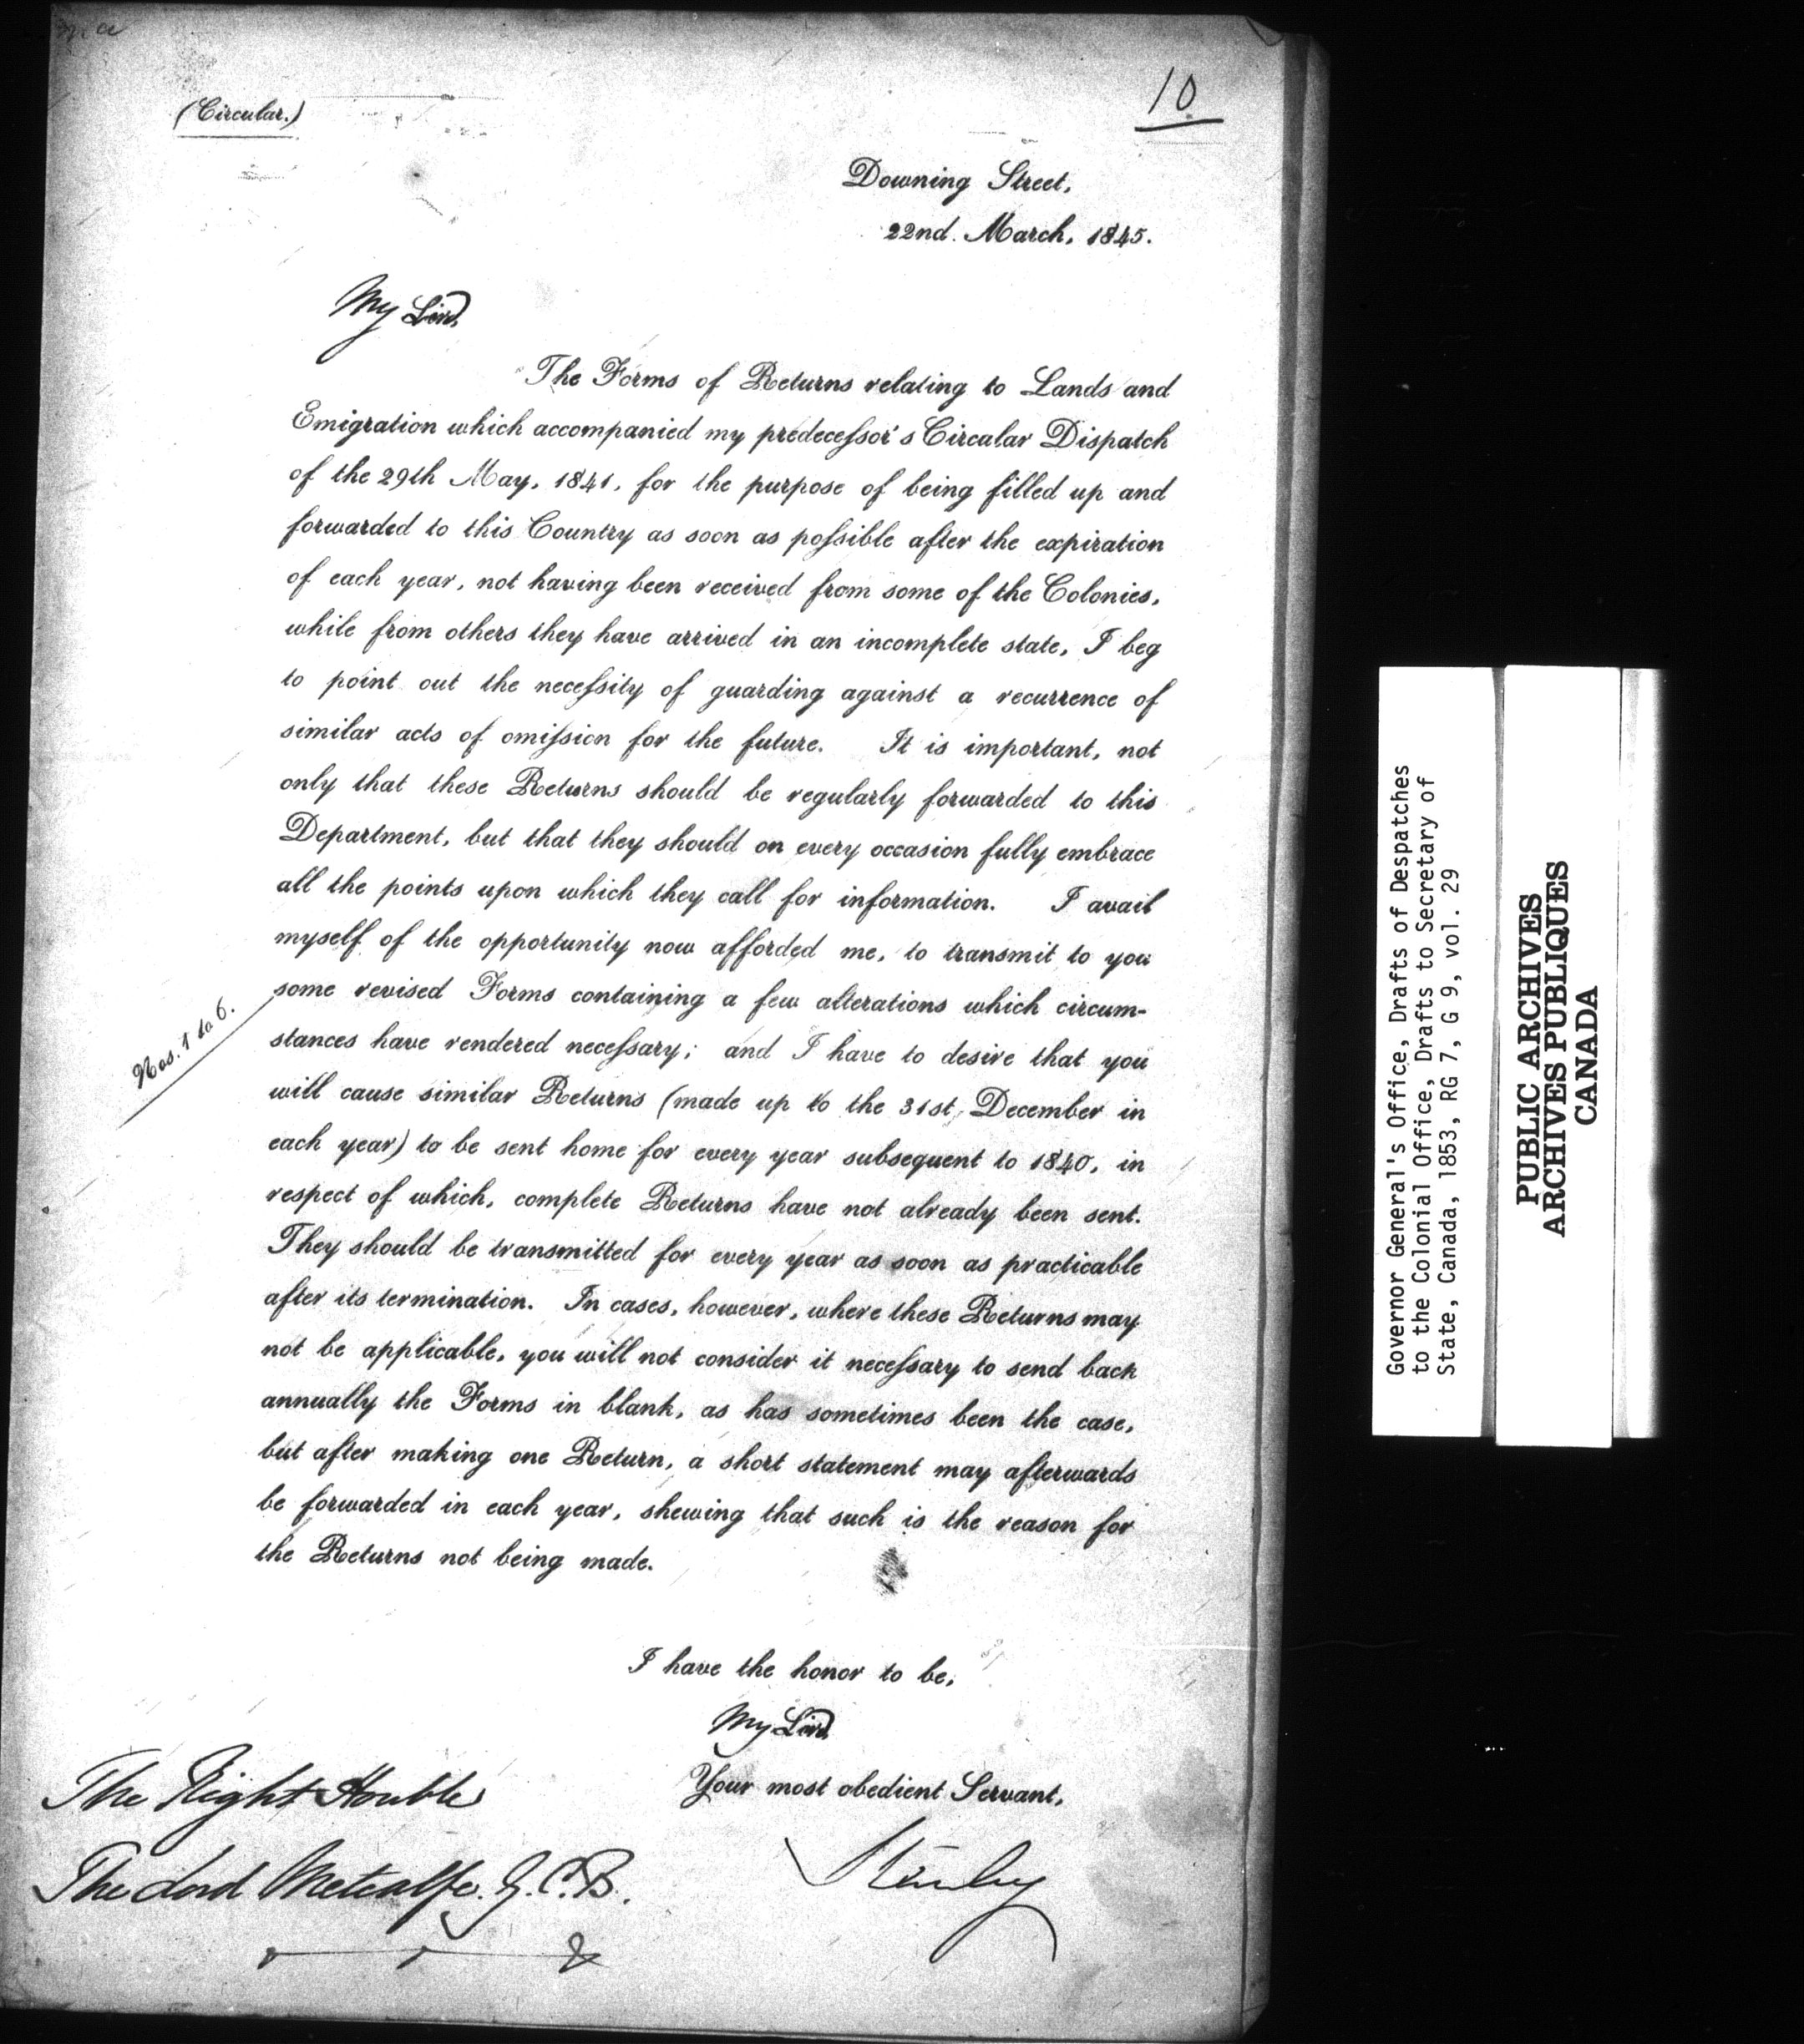 (Circular.)
10
Downing Street,
22nd. March, 1845.
My Lord,
The Forms of Returns relating to Lands and
Emigration which accompanied my predecessor's Circular Dispatch
of the 29th May, 1841, for the purpose of being filled up and
forwarded to this Country as soon as possible after the expiration
of each year, not having been received from some of the Colonies,
while from others they have arrived in an incomplete state, I beg
to point out the necessity of guarding against a recurrence of
similar acts of omission for the future. It is important, not
only that these Returns should be regularly forwarded to this
Department, but that they should on every occasion fully embrace
all the points upon which they call for information. I avail
myself of the opportunity now afforded me, to transmit to you
Nos. 1 to 6.
some revised Forms containing a few alterations which circum-
stances have rendered necessary; and I have to desire that you
will cause similar Returns (made up to the 31st, December in
each year) to be sent home for every year subsequent to 1840, in
respect of which, complete Returns have not already been sent.
They should be transmitted for every year as soon as practicable
after its termination. In cases, however, where these Returns may
not be applicable, you will not consider it necessary to send back
annually the Forms in blank, as has sometimes been the case,
but after making one Return, a short statement may afterwards
be forwarded in each year, shewing that such is the reason for
the Returns not being made.
I have the honor to be,
My Lord,
Your most obedient Servant,
Stanley
The Right Honble
The Lord Metcalfe. G.C.B.
Governor General's Office, Drafts of Despatches
to the Colonial Office, Drafts to Secretary of
State, Canada, 1853, RG 7, G 9, vol. 29
PUBLIC ARCHIVES
ARCHIVES PUBLIQUES
CANADA